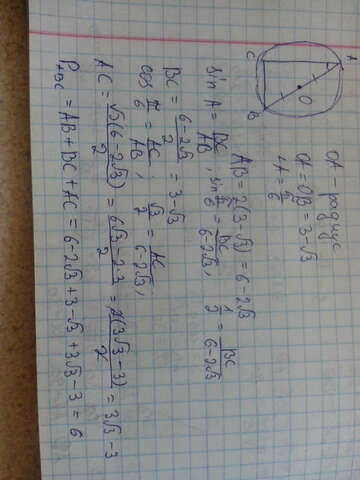 A
C
O
B
OA радиус
OA = OB = 3-√3
∠A = π/6
AB = 2(3-√3) = 6-2√3
sin A = BC/AB, sin π/6 = BC/6-2√3, 1/2 = BC/6-2√3
BC = 6-2√3/2 = 3-√3
cos π/6 = AC/AB, √3/2 = AC/6-2√3,
AC = √3(6-2√3)/2 = 6√3-2·3/2 = 2(3√3-3)/2 = 3√3-3
P ABC = AB+BC+AC = 6-2√3+3-√3+3√3-3 = 6